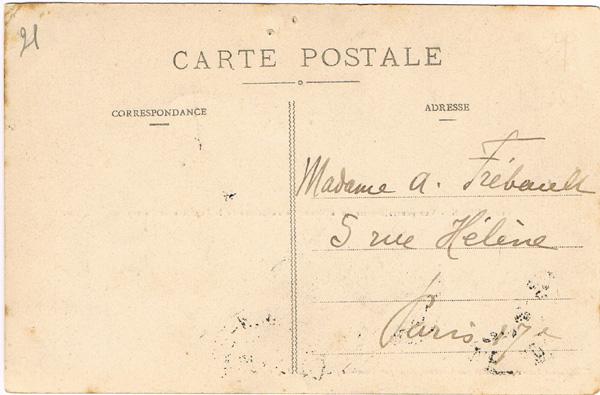 21
CARTE POSTALE
CORRESPONDANCE
ADRESSE
Madame A. Frébault
5 rue Hélène
Paris 17e